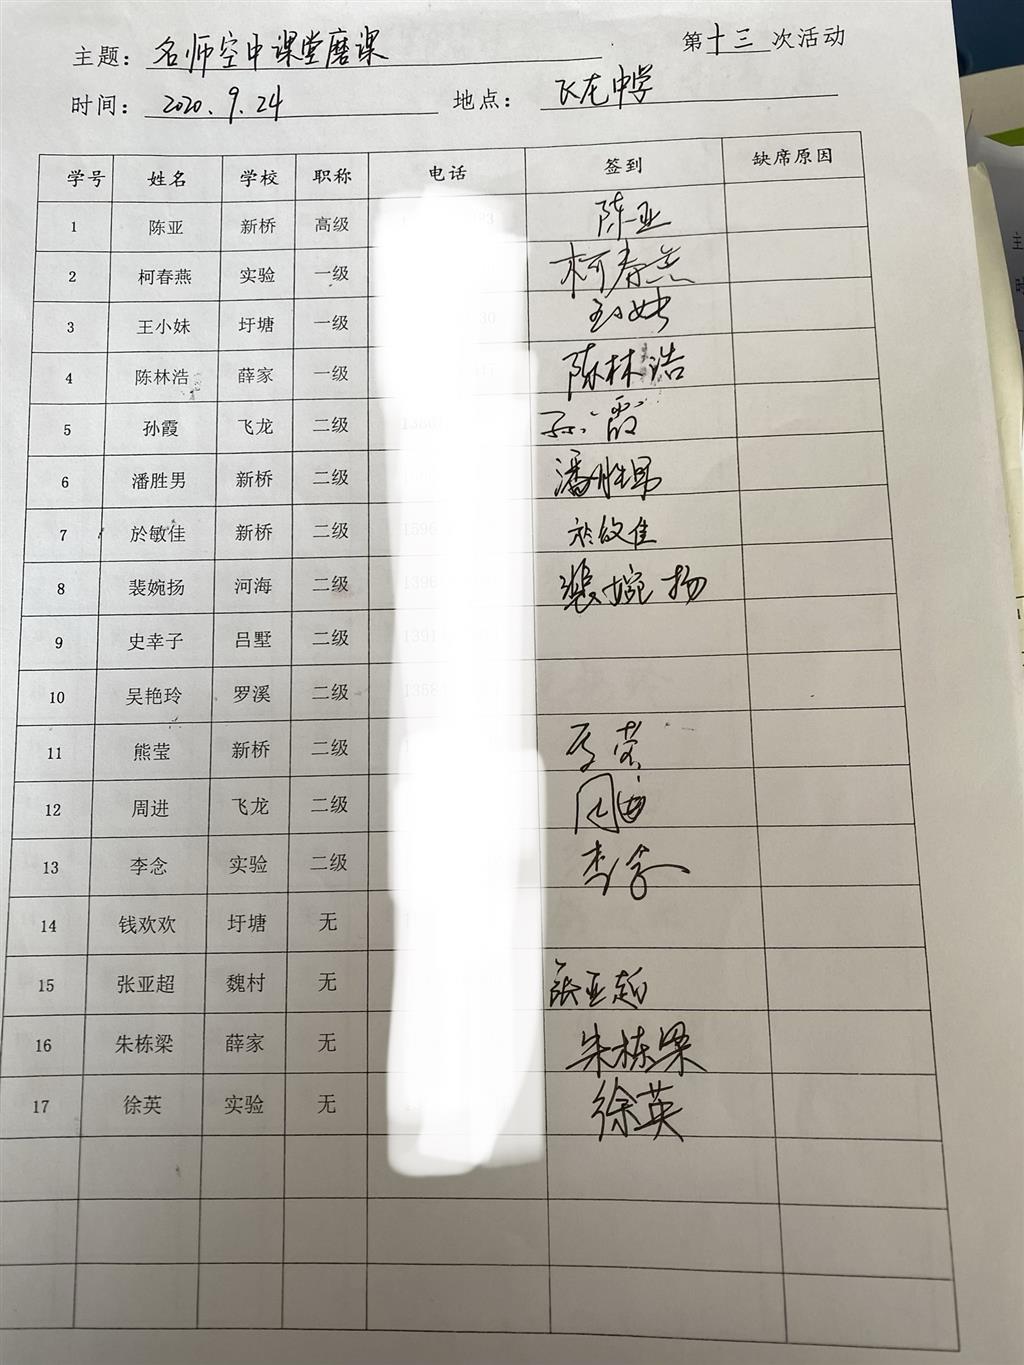 主题：名师空中课堂磨课 第十三次活动
时间：2020.9.24 地点：飞龙中学
学号 姓名 学校 职称 电话 签到 缺席原因
1 陈亚 新桥 高级 陈亚
2 柯春燕 实验 一级 柯春燕
3 王小妹 圩塘 一级 王小妹
4 陈林浩 薛家 一级 陈林浩
5 孙霞 飞龙 二级 孙霞
6 潘胜男 新桥 二级 潘胜男
7 於敏佳 新桥 二级 於敏佳
8 裴婉扬 河海 二级 裴婉扬
9 史幸子 吕墅 二级
10 吴艳玲 罗溪 二级
11 熊莹 新桥 二级
12 周进 飞龙 二级 周进
13 李念 实验 二级 李念
14 钱欢欢 圩塘 无
15 张亚超 魏村 无 张亚超
16 朱栋梁 薛家 无 朱栋梁
17 徐英 实验 无 徐英